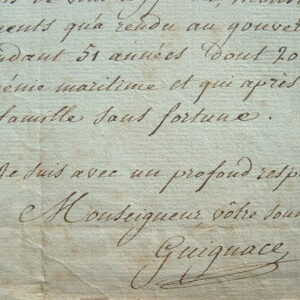 ents qu'a rendu au gouver
ndant 51 années dont 20
éme maritime et qui après
famille sans fortune.
Je suis avec un profond resp
Monseigneur, vôtre sou
Guignace